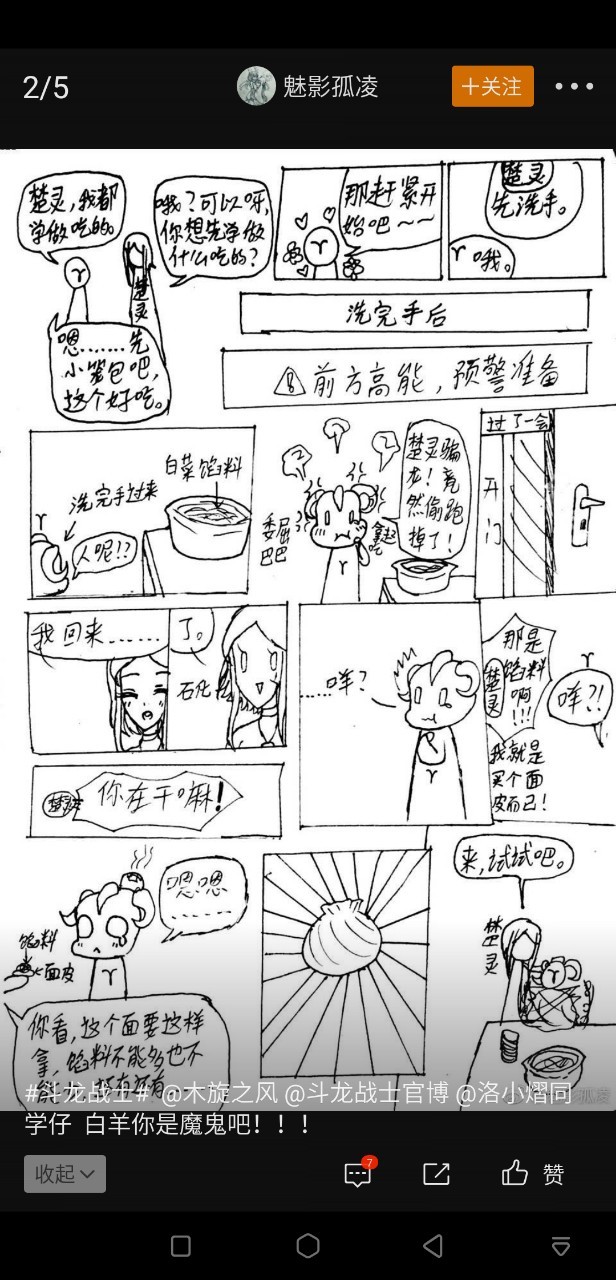 2/5
魅影孤凌
+关注
楚灵,我都
学做吃的。
哦?可以呀,
你想先学做
什么吃的?
楚
灵
嗯……先
小笼包吧,
这个好吃。
那赶紧开
始吧~~
楚灵
先洗手。
哦。
洗完手后
前方高能,预警准备
白菜馅料
洗完手过来
人呢!?
委屈
巴巴
楚灵骗
龙!竟
然偷跑
掉了!
拿起
吃
过了一会
开
门
我回来……
了。
石化
……咩?
那是
馅料
啊
!!!
楚灵
我就是
买个面
皮而已!
咩?!
你在干嘛!
嗯嗯
……
馅料
面皮
你看,这个面要这样
拿,馅料不能多也不
来,试试吧。
楚
灵
#斗龙战士# @木旋之风 @斗龙战士官博 @洛小熠同
学仔 白羊你是魔鬼吧!!!
收起
7
赞